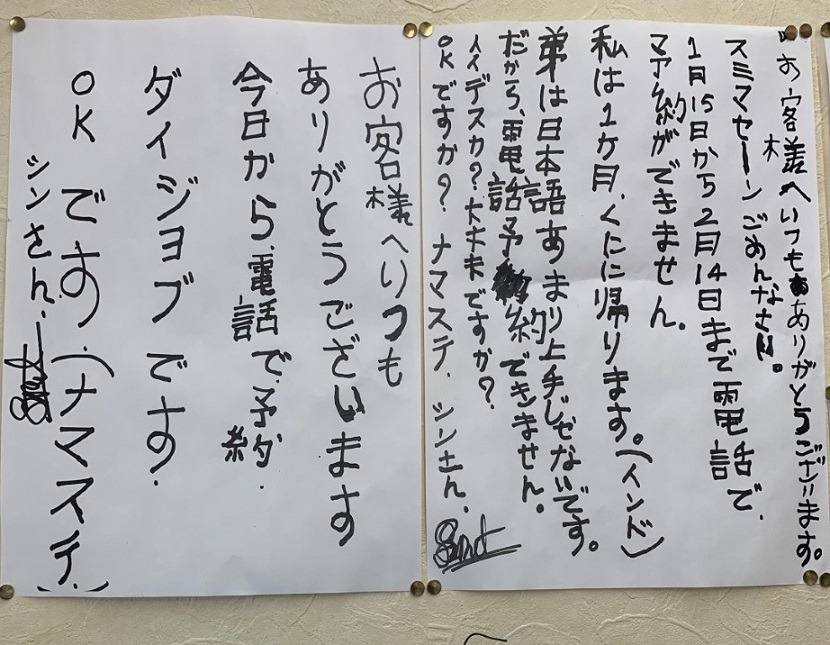 お客様へいつもありがとうございます。
スミマセーンごめんなさい。
1月15日から2月14日まで電話で、
予約ができません。
私は1ケ月、くにに帰ります。(インド)
弟は日本語あまり上手じぜないです。
だから、電話予約できません。
イイデスカ?大丈夫ですか?
OKですか?ナマステ.シンさん.
お客様へいつも
ありがとうございます
今日から、電話で予約.
ダイジョブです.
OKです.(ナマステ.)
シンさん.